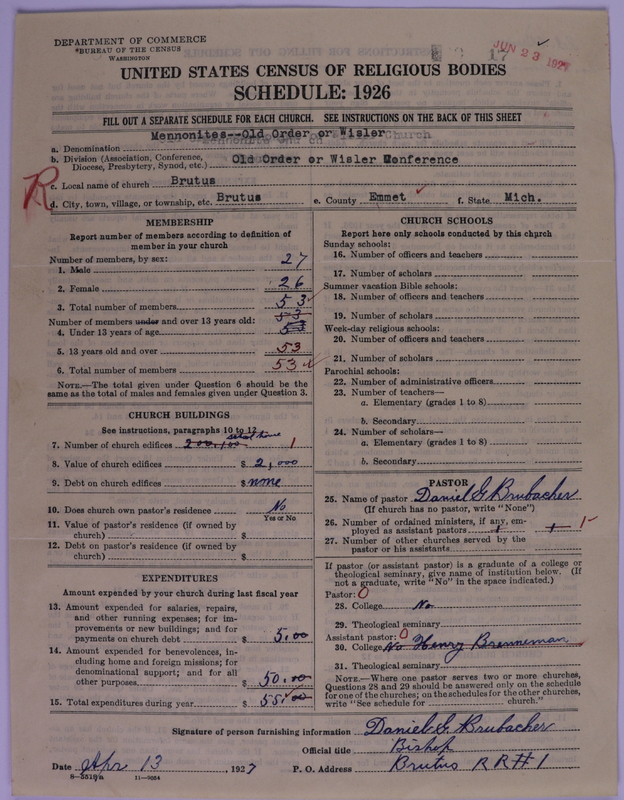 DEPARTMENT OF COMMERCE
BUREAU OF THE CENSUS
WASHINGTON
17
JUN 23 1927
UNITED STATES CENSUS OF RELIGIOUS BODIES
SCHEDULE: 1926
FILL OUT A SEPARATE SCHEDULE FOR EACH CHURCH. SEE INSTRUCTIONS ON THE BACK OF THIS SHEET
Mennonites--Old Order or Wisler Church
a. Denomination
b. Division (Association, Conference, Diocese, Presbytery, Synod, etc.) Old Order or Wisler Conference
R
c. Local name of church Brutus
d. City, town, village, or township, etc. Brutus e. County Emmet f. State Mich.
MEMBERSHIP
Report number of members according to definition of member in your church
Number of members, by sex:
1. Male 27
2. Female 26
3. Total number of members 53
Number of members under and over 13 years old: 53
4. Under 13 years of age 53
5. 13 years old and over 53
6. Total number of members 53
NOTE.—The total given under Question 6 should be the same as the total of males and females given under Question 3.
CHURCH BUILDINGS
See instructions, paragraphs 10 to 12
7. Number of church edifices 1
8. Value of church edifices $ 2,000
9. Debt on church edifices $ none
10. Does church own pastor's residence No
Yes or No
11. Value of pastor's residence (if owned by church) $
12. Debt on pastor's residence (if owned by church) $
EXPENDITURES
Amount expended by your church during last fiscal year
13. Amount expended for salaries, repairs, and other running expenses; for improvements or new buildings; and for payments on church debt $ 5.00
14. Amount expended for benevolences, including home and foreign missions; for denominational support; and for all other purposes $ 50.00
15. Total expenditures during year $ 55.00
CHURCH SCHOOLS
Report here only schools conducted by this church
Sunday schools:
16. Number of officers and teachers
17. Number of scholars
Summer vacation Bible schools:
18. Number of officers and teachers
19. Number of scholars
Week-day religious schools:
20. Number of officers and teachers
21. Number of scholars
Parochial schools:
22. Number of administrative officers
23. Number of teachers—
a. Elementary (grades 1 to 8)
b. Secondary
24. Number of scholars—
a. Elementary (grades 1 to 8)
b. Secondary
PASTOR
25. Name of pastor Daniel G Brubacher
(If church has no pastor, write "None")
26. Number of ordained ministers, if any, employed as assistant pastors 1 1
27. Number of other churches served by the pastor or his assistants
If pastor (or assistant pastor) is a graduate of a college or theological seminary, give name of institution below. (If not a graduate, write "No" in the space indicated.)
Pastor: 0
28. College No
29. Theological seminary
Assistant pastor: 0
30. College No Henry Brenneman
31. Theological seminary
NOTE.—Where one pastor serves two or more churches, Questions 28 and 29 should be answered only on the schedule for one of the churches; on the schedules for the other churches, write "See schedule for church."
Signature of person furnishing information Daniel G. Brubacher
Official title Bishop
Date Apr 13, 1927 P. O. Address Brutus R R # 1
11—9064